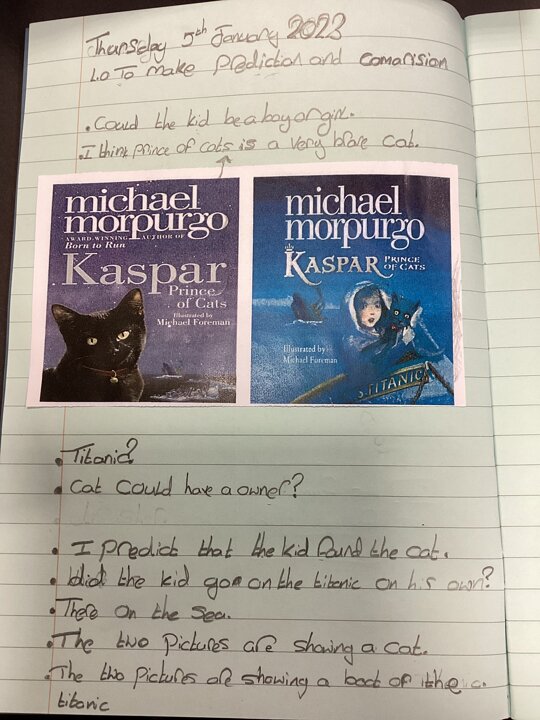 Thursday 5th January 2023
L.o To make prediction and comarision
• Could the kid be a boy or girl.
• I think prince of cats is a very brave cat.
michael
morpurgo
AWARD-WINNING AUTHOR OF
Born to Run
Kaspar
Prince
of Cats
Illustrated by
Michael Foreman
michael
morpurgo
KASPAR PRINCE
OF CATS
Illustrated by
Michael Foreman
S. TITANIC
• Titanic?
• Cat could have a owner?
• I predict that the kid found the cat.
• did the kid go on the titanic on his own?
• There on the sea.
• The two pictures are showing a cat.
• The two pictures are showing a boat of the
titanic